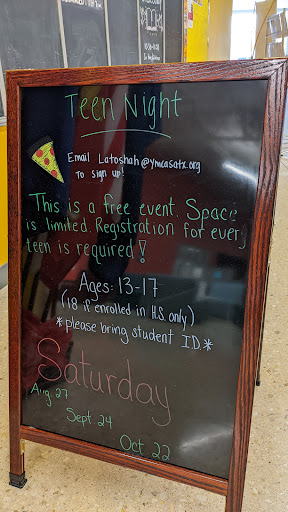 Teen Night
Email Latoshah@ymcasatx.org
to sign up!
This is a free event. Space
is limited. Registration for every
teen is required!
Ages: 13-17
(18 if enrolled in H.S. only)
*please bring student ID.*
Saturday
Aug. 27
Sept. 24
Oct 22